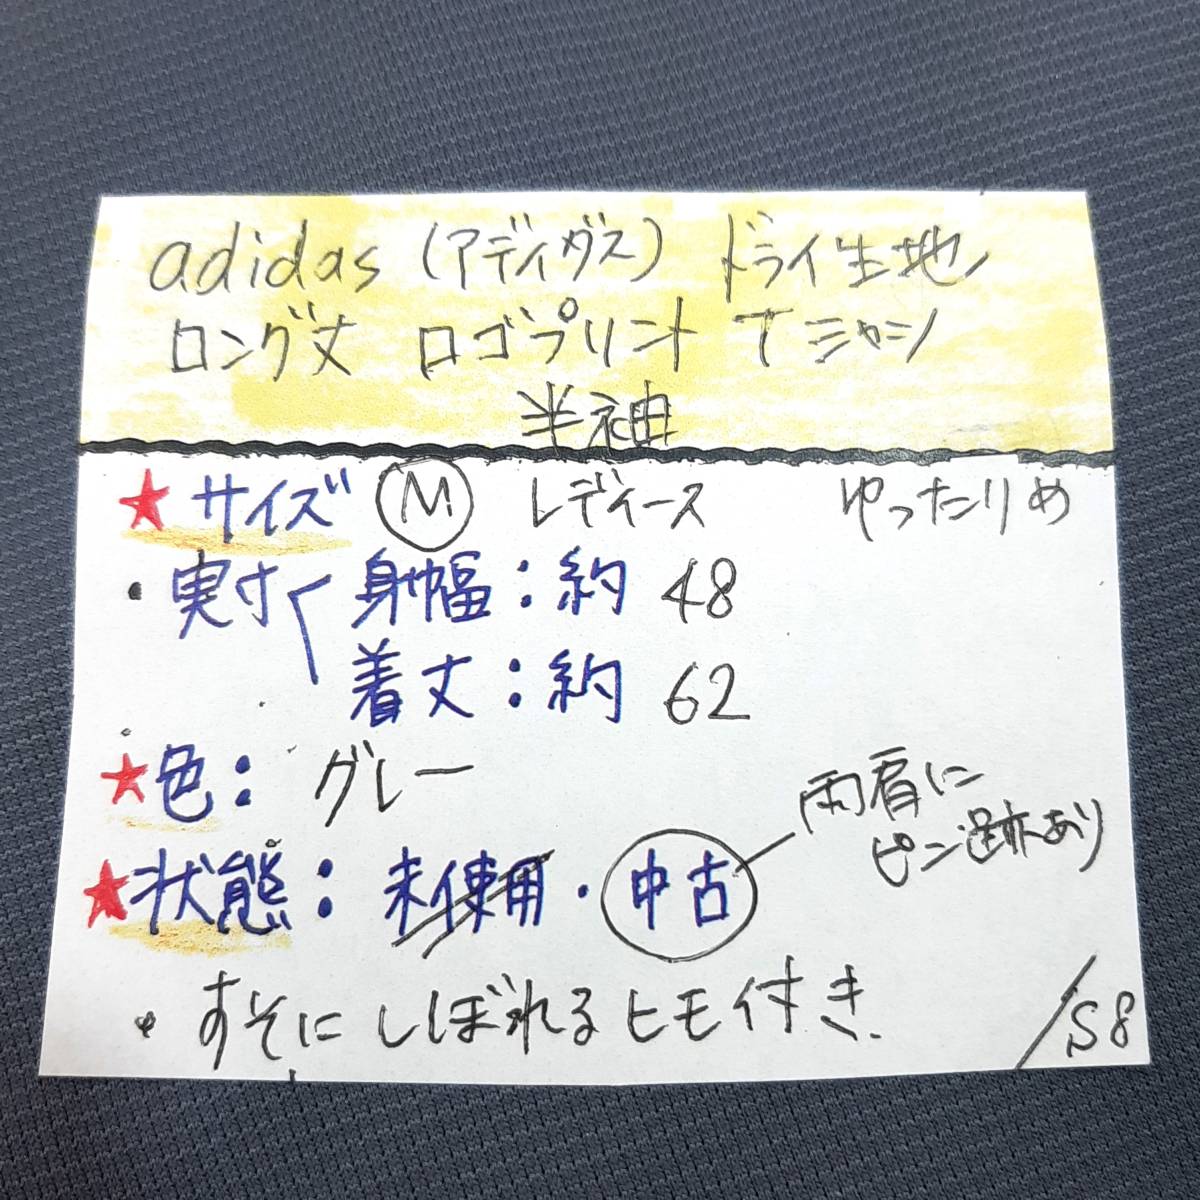 adidas (アディダス) ドライ生地
ロング丈 ロゴプリント Tシャツ
半袖
★サイズ Ⓜ レディース ゆったりめ
・実寸〈 身幅:約 48
着丈:約 62
★色: グレー
両肩に
ピン跡あり
★状態: 未使用・中古
・すそにしぼれるヒモ付き.
/S8